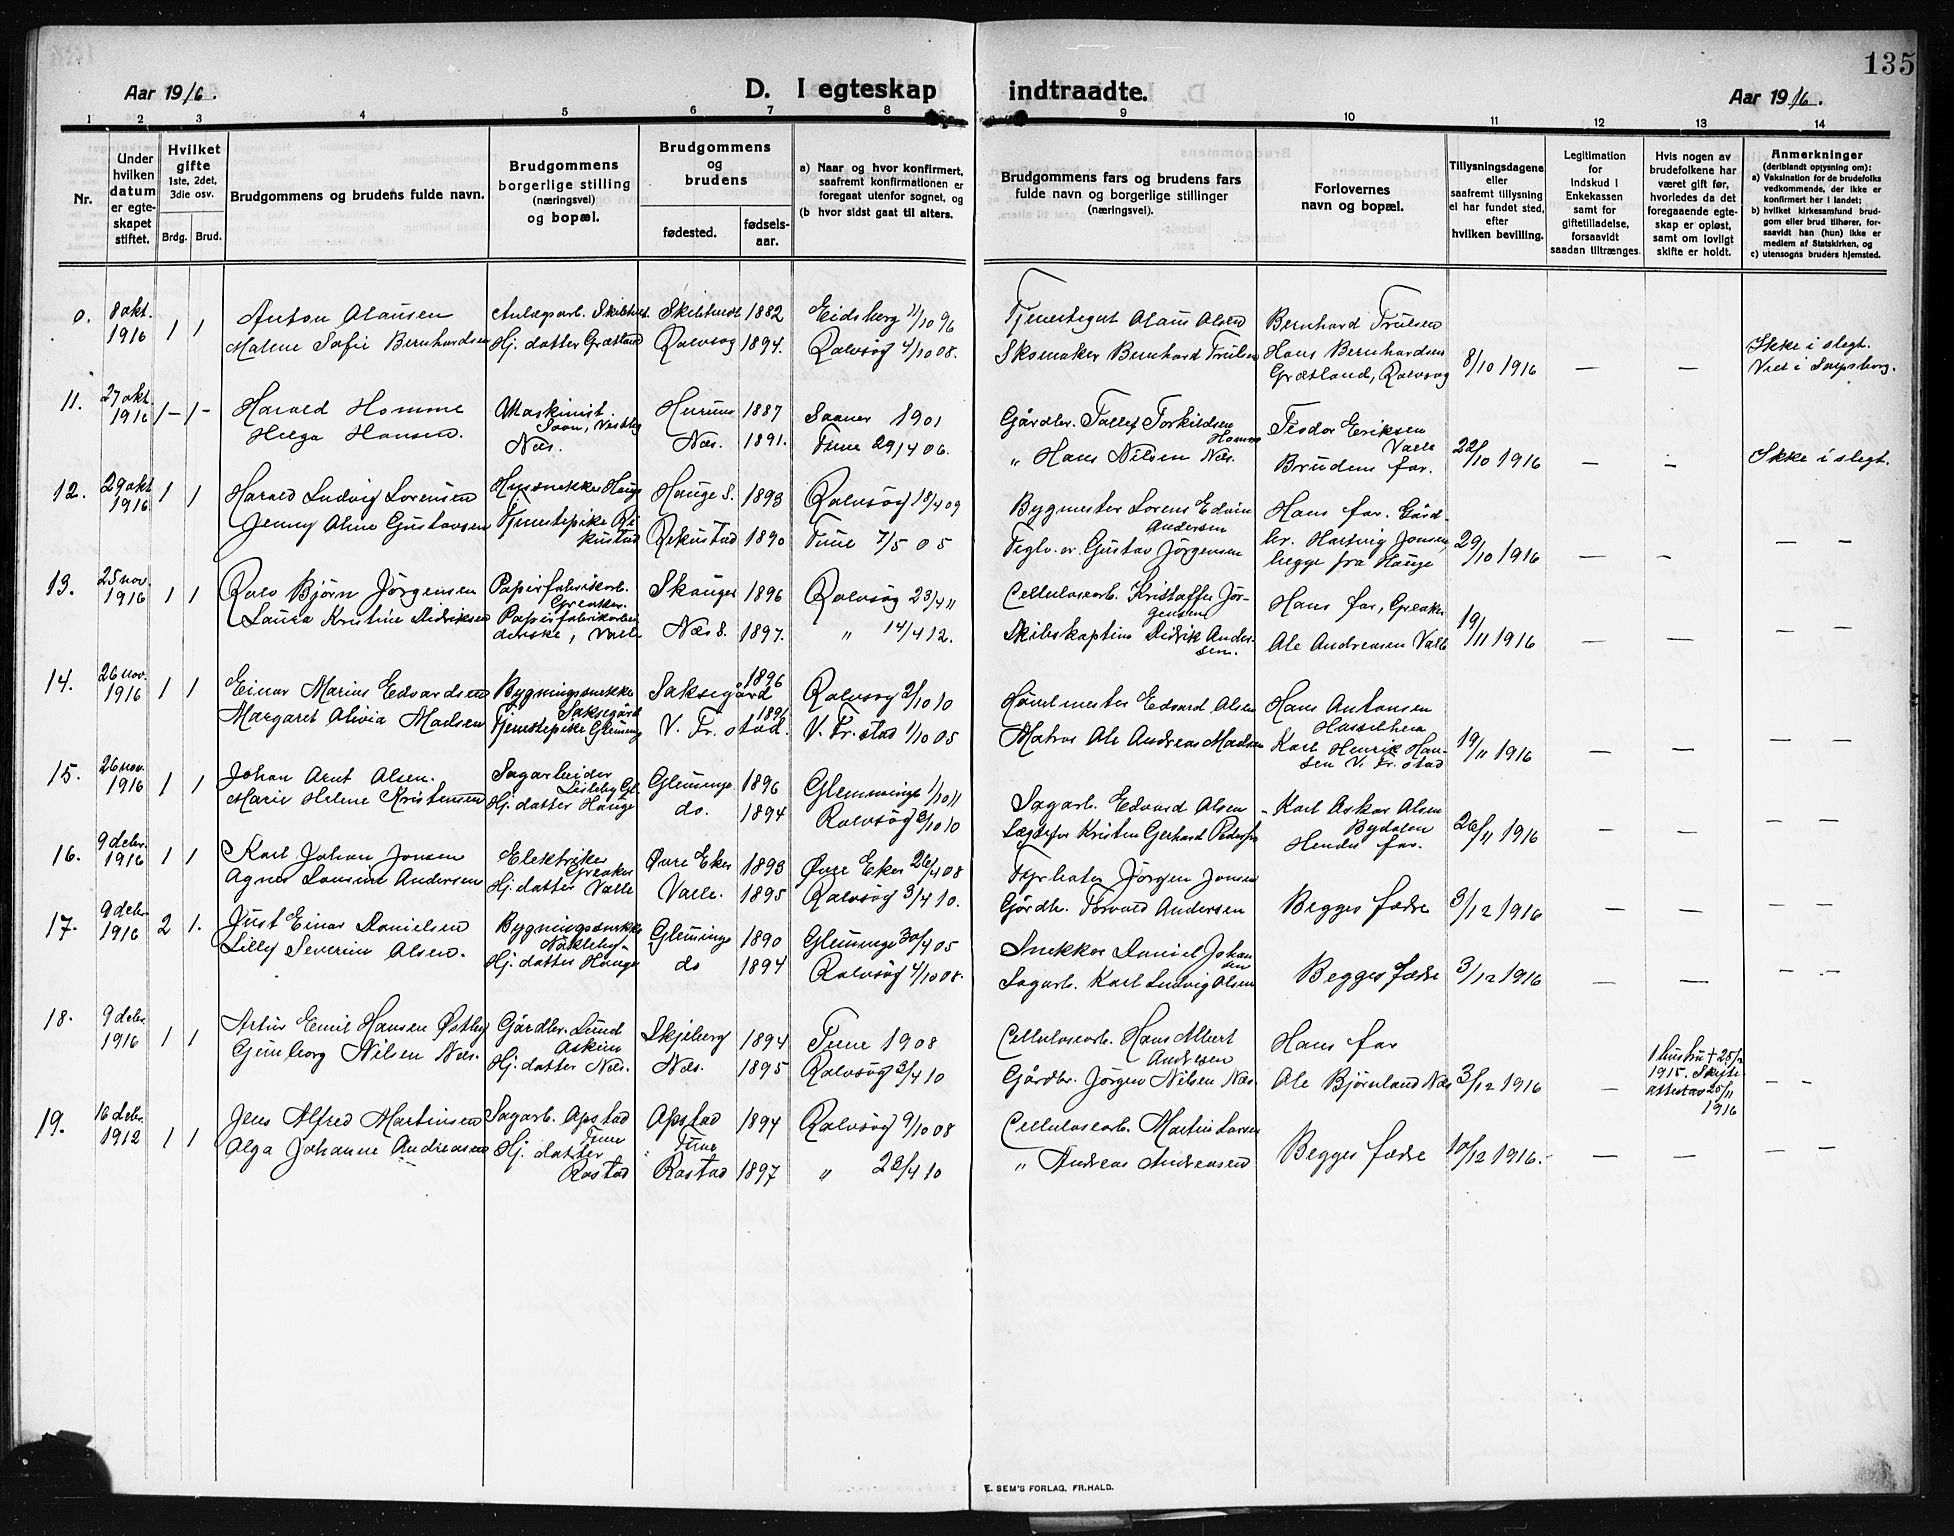 135
Aar 1916. D. I egteskap indtraadte. Aar 1916.
1 2 3 4 5 6 7 8 9 10 11 12 13 14
Nr.
Under hvilken datum er egteskapet stiftet.
Hvilket gifte 1ste, 2det, 3die osv.
Brdg. Brud.
Brudgommens og brudens fulde navn.
Brudgommens borgerlige stilling (næringsvei) og bopæl.
Brudgommens og brudens
fødested. fødsels-aar.
a) Naar og hvor konfirmert, saafremt konfirmationen er foregaat utenfor sognet, og
(b hvor sidst gaat til alters.
Brudgommens fars og brudens fars fulde navn og borgerlige stillinger (næringsvei).
Forlovernes navn og bopæl.
Tillysningsdagene eller saafremt tillysning ei har fundet sted, efter hvilken bevilling.
Legitimation for Indskud i Enkekassen samt for giftetilladelse, forsaavidt saadan tiltrænges.
Hvis nogen av brudefolkene har været gift før, hvorledes da det foregaaende egteskap er opløst, samt om lovligt skifte er holdt.
Anmerkninger (deriblandt opjysning om):
a) Vaksination for de brudefolks vedkommende, der ikke er konfirmert her i landet;
b) hvilket kirkesamfund brudgom eller brud tilhører, forsaavidt han (hun) ikke er medlem af Statskirken, og
c) utensogns bruders hjemsted.
0. 8 okt. 1916 1 1 Anton Olausen Anlægsarb. Skibtvet 1882 Eidsberg 11/10 96 Tjenestegut Olaus Olsen Bernhard Trulsen
Malene Sofie Bernhardsen Hj. datter Grætland Rolvsøg 1894. Rolvsøg 4/10 08. Skomaker Bernhard Trulsen Hans Bernhardsen Grætland, Rolvsøg 8/10 1916 — — Ikke i slegt. Viet i Sarpsborg.
11. 27 okt 1916 1- 1- Harald Homme Maskinist. Soon, Vestby Hurum 1887 Saaner 1901 Gårdbr. Tallef Torkildsen Homme Teodor Eriksen Valle
Helga Hansen. Næs. Næs. 1891. Tune 29/4 06. " Hans Nilsen Næs. Brudens far. 22/10 1916 — — Ikke i slegt.
12. 29 okt 1916 1 1 Harald Ludvig Lorensen Hussnekker Hauge Hauge S. 1893 Rolvsøg 18/4 09 Bygmester Lorens Edvin Andersen Hans far. Gård-
Jenny Oline Gustavsen Tjenestepike Rekustad Rekustad 1890 Tune 7/5 05 Teglv. er. Gustav Jørgensen br. Hartvig Jonsen, begge fra Hauge 29/10 1916 — — — —
13. 25 nov. 1916 1 1 Rolv Bjørn Jørgensen Papirfabrikarb. Greaker. 1896 Rolvsøg 23/4 11 Cellulosearb. Kristoffer Jørgensen Hans far, Greaker
Laura Kristine Didriksen Papirfabrikarbeiderske, Valle Næs S. 1897. " 14/4 12. Skibskaptein Didrik Andersen. Ole Andreasen Valle 19/11 1916 — — — —
14. 26 nov. 1916 1 1 Einar Marius Edvardsen Bygningssnekker Saksegård Saksegård 1896 Rolvsøg 2/10 10 Edvard Olsen Hans Antonsen Hasselheia
Margaret Olivia Madsen Tjenestepike Glemmige V. Fr. stad. 1891 V. Fr. stad 1/10 05 Matros Ole Andreas Madsen Karl Henrik Hansen V. Fr. stad 19/11 1916 — — — —
15. 26 nov. 1916 1 1 Johan Arnt Olsen. Sagarbeider Lisleby Gl. Glemminge 1896 Glemminge 1/10 11 Sagarb. Edvard Olsen - Karl Oskar Olsen Bydalen
Marie Helene Kristensen Hj. datter Hauge do. 1894 Rolvsøg 2/10 10 Kristen Gerhard Pedersen Hendes far. 26/11 1916 — — — —
16. 9 debr. 1916 1 1 Karl Johan Jonsen Elektriker Greaker Øvre Eker 1893 Øvre Eker 26/4 08 Fyrbøter Jørgen Jonsen
Agnes Lovise Andersen Hj. datter Valle Valle. 1895 Rolvsøg 3/4 10. Gårdbr. Torvald Andersen Begges fædre 3/12 1916 — — — —
17. 9 debr. 1916 2 1. Just Einar Danielsen Bygningssnekker Nøkleby- Glemminge 1890 Glemminge 30/4 05 Snekker Daniel Johansen
Lilly Severine Olsen. Hj. datter Hauge do 1894 Rolvsøg 4/10 08. Sagarb. Karl Ludvig Olsen Begges fædre 3/12 1916 — — — —
18. 9 debr. 1916 1 1 Artur Emil Hansen Østby Gårdbr. Lund Askim Skjeberg 1894 Tune 1908 Cellulosearb. Hans Albert Andresen Hans far
Gunborg Nilsen Næs. Hj. datter Næs. Næs. 1895 Rolvsøg 3/4 10 Gårdbr. Jørgen Nilsen Næs. Ole Bjørnland Næs 3/12 1916 — 1 hustru + 25/2 1915. Skifteattestav 25/11 1916 — —
19. 16 debr. 1912 1 1 Jens Alfred Martinsen Sagarb. Opstad Tune Opstad Tune 1894 Rolvsøg 9/10 08 Cellulosearb. Martin Larsen
Olga Johanne Andreasen Hj. datter Rostad Rostad 1897 " 28/4 10 " Andreas Andreasen Begges fædre 10/12 1916. — — —
E. SEM'S FORLAG, FR.HALD.